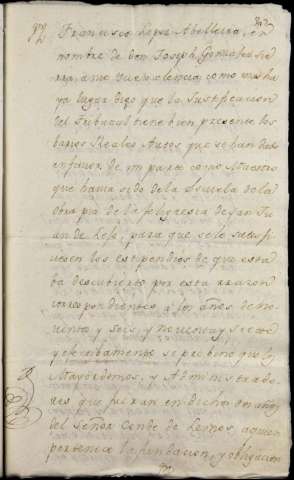 Francisco Lopez Abelleira, en
nombre de don Joseph Gonzalez
ante Vuexcelencia, como mas ha
ya lugar digo que la Justificacion
del tribunal tiene bien presente los
barios Reales Autos que se han dado
en favor de mi parte como Maestro
que havia sido de la Escuela de la
obra pia de la feligresia de San Ju
an de para que se le
sen los estipendios de que esta
ba descubierto por esta razon
correspondientes a los años de no
uenta y seis, y nouenta y siete
y efectibamente se prebino que los
Mayordomos, o Administrado
res que fueran en dichos años
del Señor Conde de Lemos, a quien
pertenece la fundacion, y obligacion